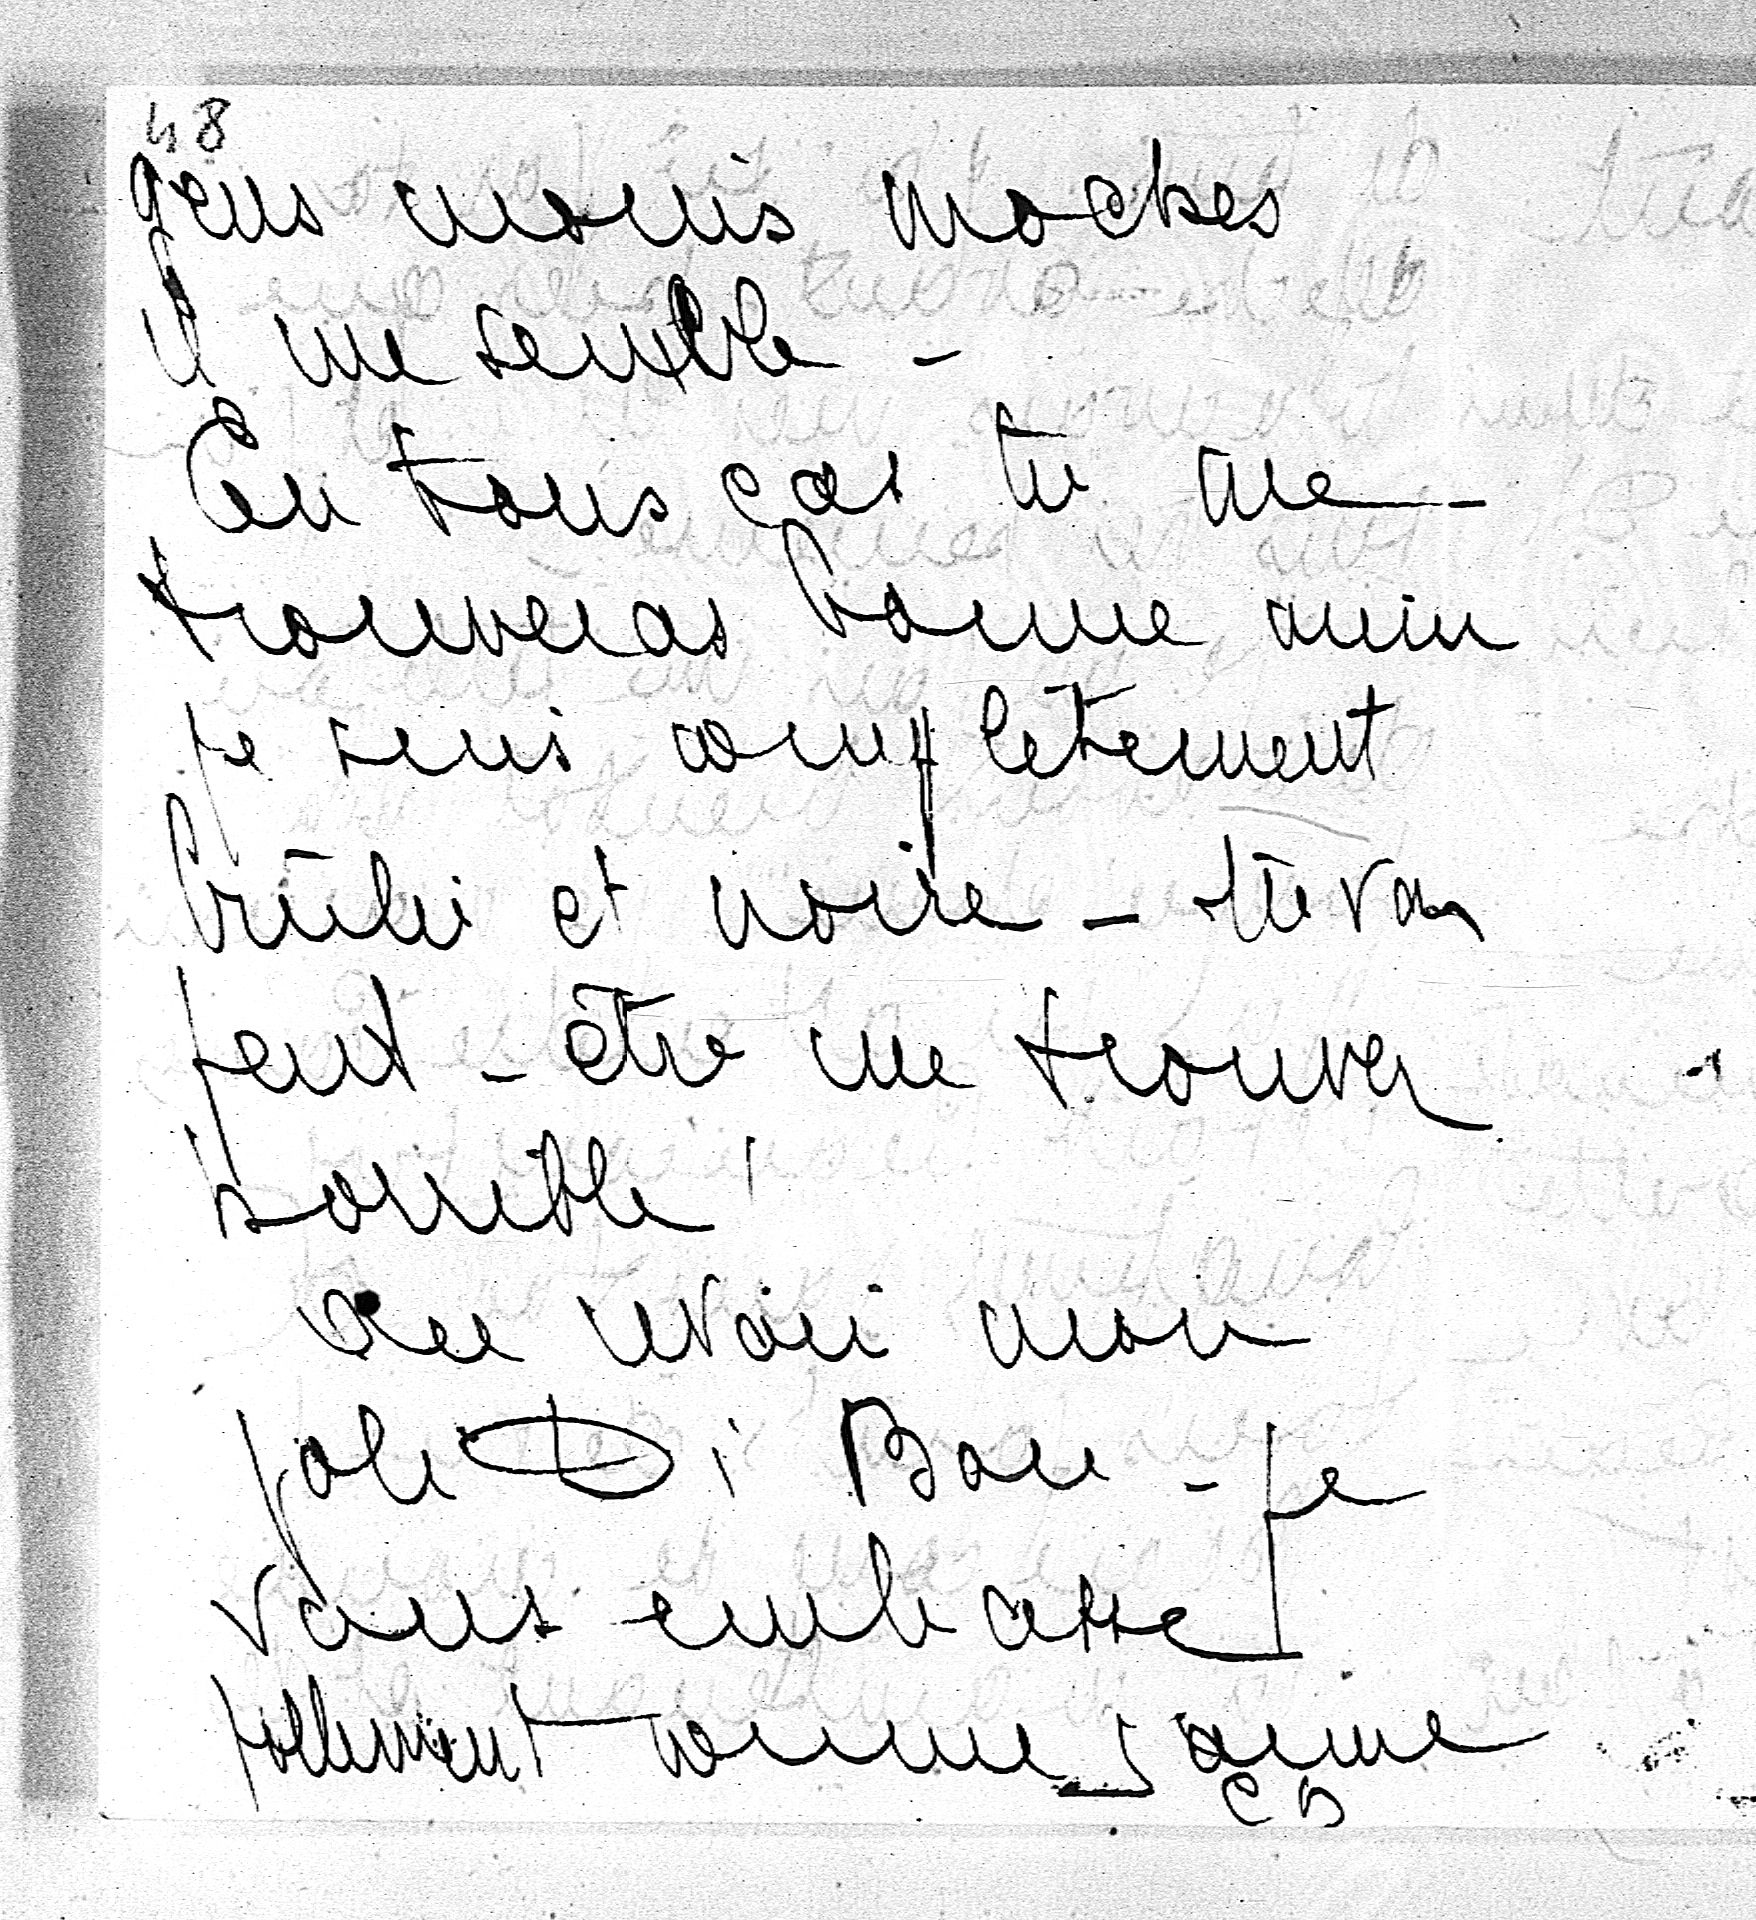 48
gens moins moches
il me semble -
En tous cas tu me
trouveras bonne mine
je suis complètement
brûlée et noire - tu vas
peut-être me trouver
horrible !
Au revoir mon
joli Bou - je
vous embrasse
follement comme j'aime